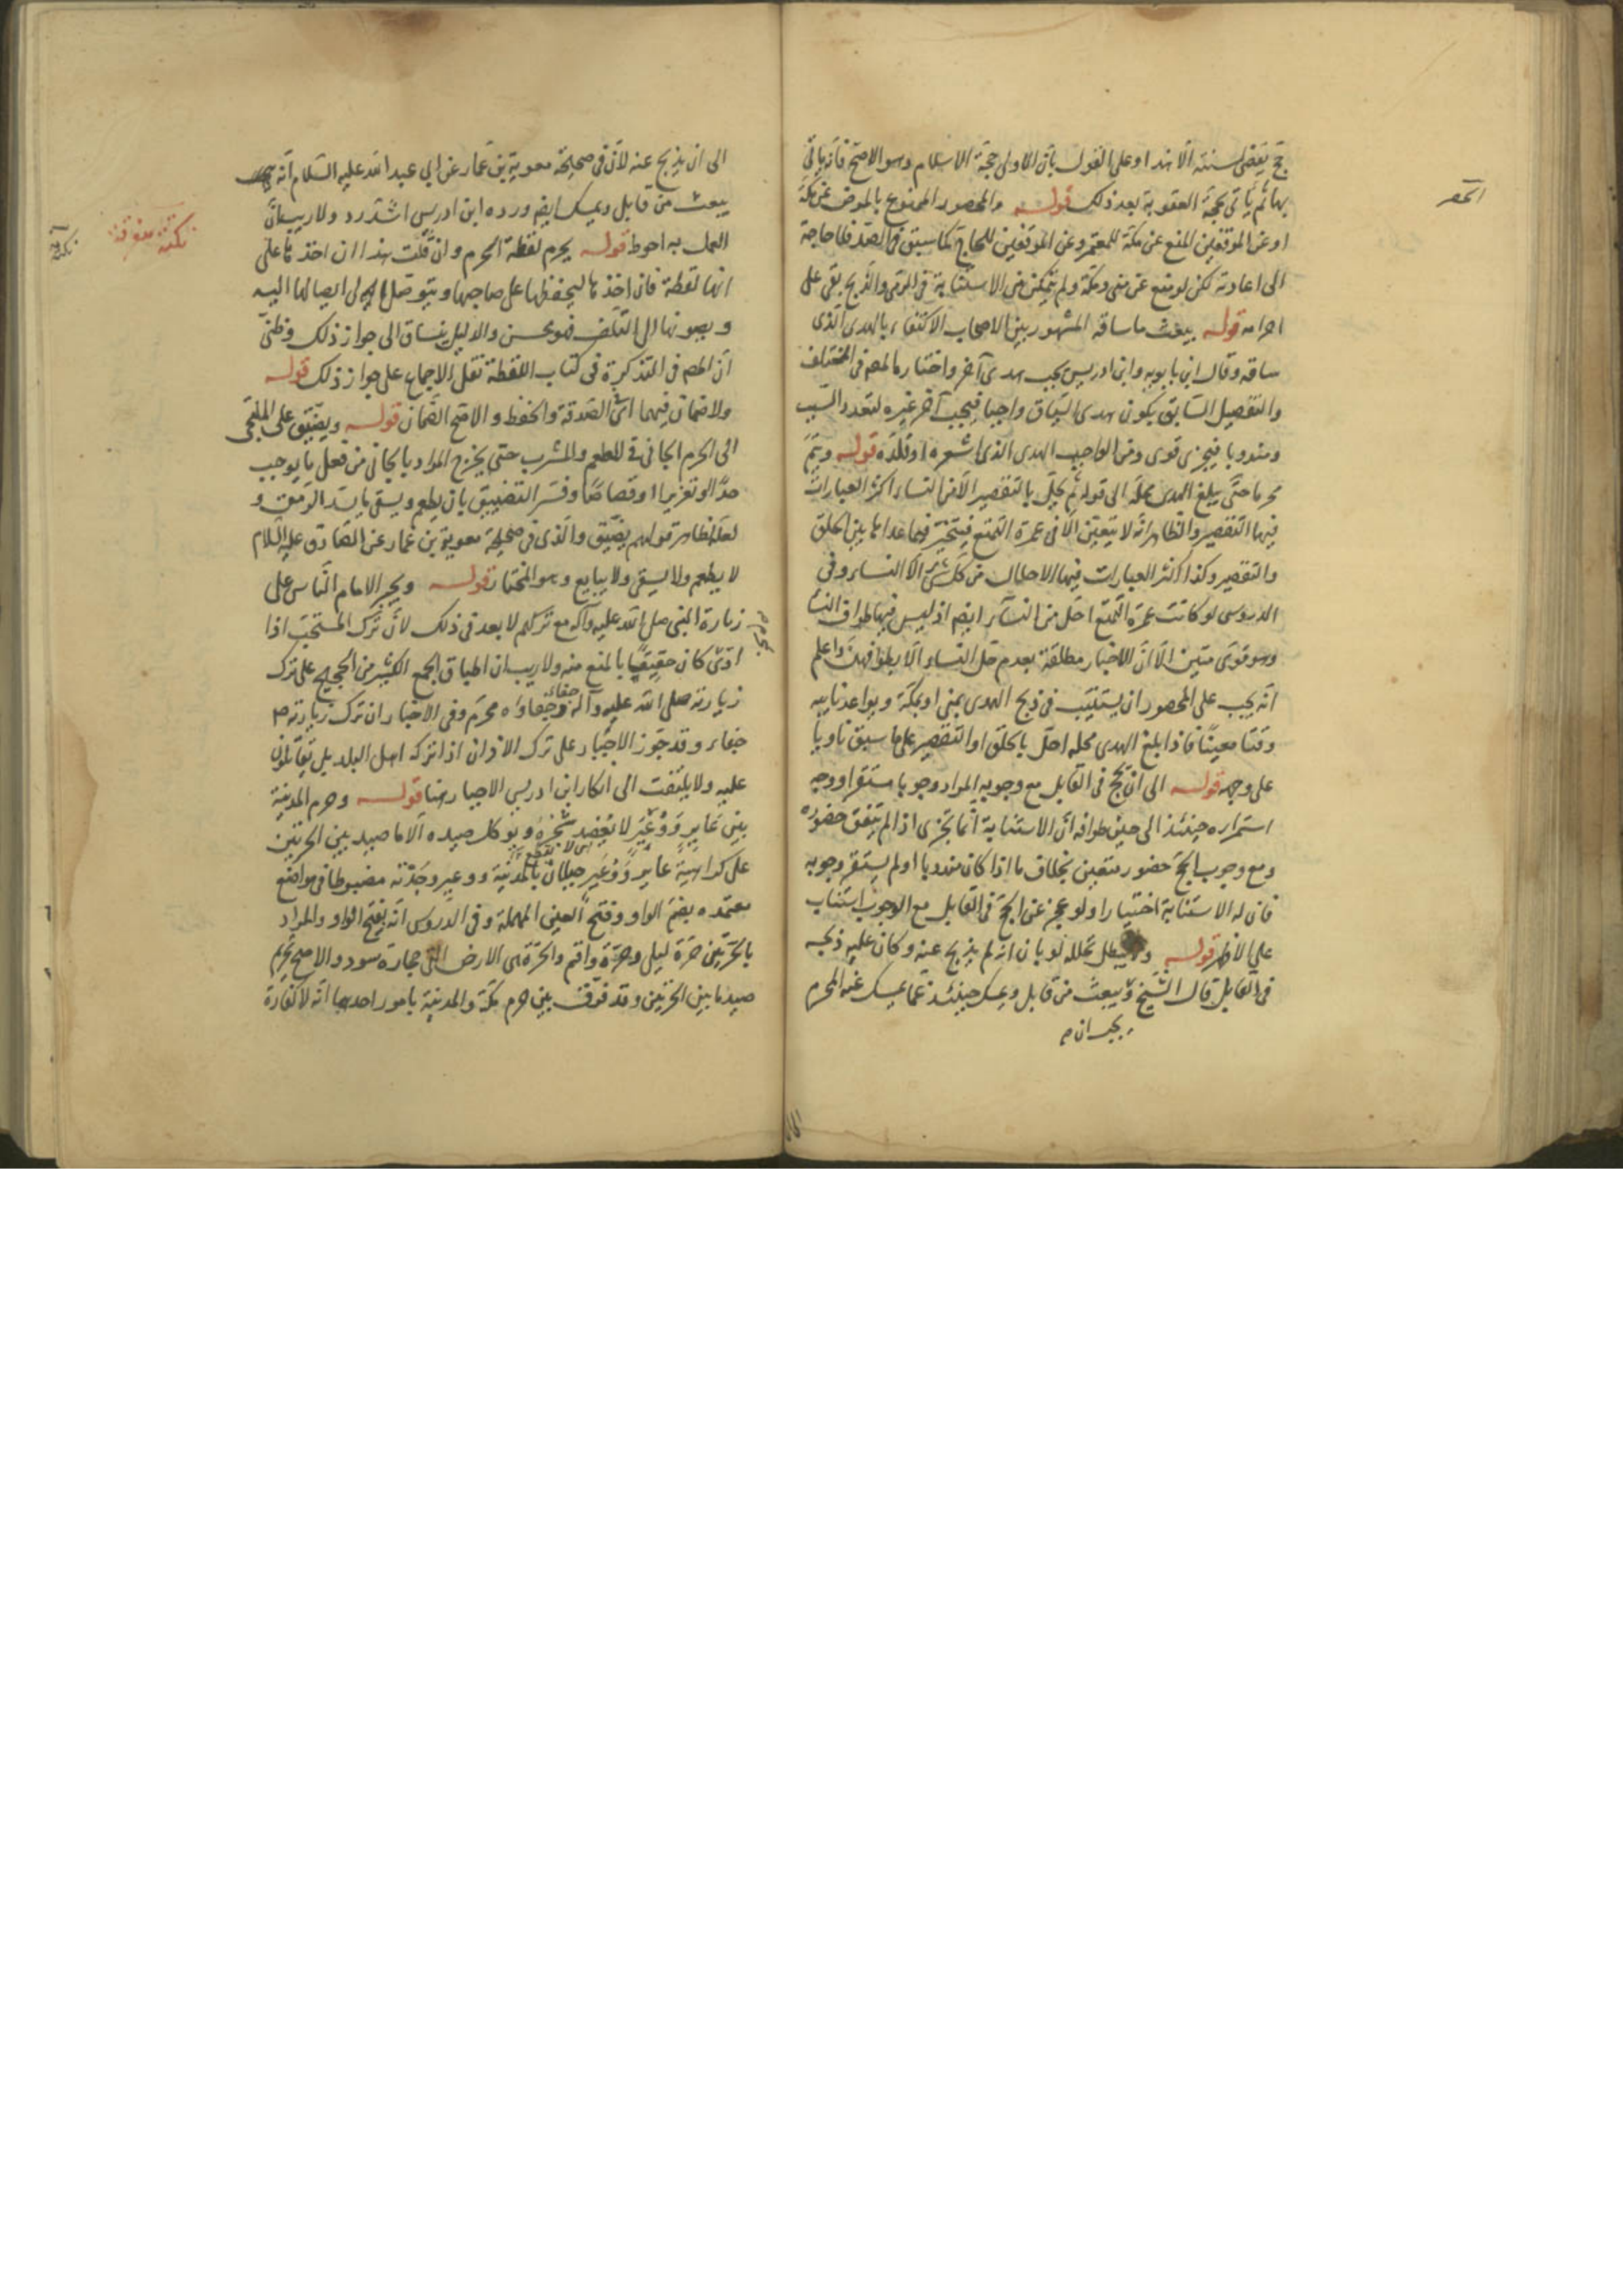 حج يقضى لسنته الا هذا وعلى القول بان الاولى حجة الاسلام وهو الاصح فانه ياتى
بها ثم ياتى بحجة العقوبة بعد ذلك قوله والمحصور الممنوع بالمرض عن مكة
او عن الموقفين المنع عن مكة للمعتمر وعن الموقفين للحاج كما سبق فى الصد فلا حاجة
الى اعادته لكن لو منع عن منى ومكة ولم يتمكن من الاستنابة فى الرمى والذبح بقى على
احرامه قوله يبعث ما ساقه المشهور بين الاصحاب الاكتفاء بالهدى الذى
ساقه وقال ابن بابويه وابن ادريس يجب هدى آخر واختاره المص فى المختلف
والتفصيل السابق بكون هدى السياق واجبا فيجب آخر غيره لتعدد السبب
ومندوبا فيجزى قوى ومن الواجب الهدى الذى اشعره او قلده قوله ويتم
محرما حتى يبلغ الهدى محله الى قوله ثم يحل بالتقصير الا من النساء اكثر العبارات
فيها التقصير والظاهر انه لا يتعين الا فى عمرة التمتع فيتخير فيما عداها بين الحلق
والتقصير وكذا اكثر العبارات فيها الاحلال من كل شئ الا النساء وفى
الدروس لو كانت عمرة التمتع احل من النساء ايضا اذ ليس فيها طواف النسا
وهو قوى متين الا ان الاخبار مطلقة بعدم حل النساء الا بطوافهن واعلم
انه يجب على المحصور ان يستنيب فى ذبح الهدى بمنى او بمكة ويواعد نايبه
وقتا معينا فاذا بلغ الهدى محله احل بالحلق او التقصير على ما سبق ناويا
على وجهه قوله الى ان يحج فى القابل مع وجوبه المراد وجوبا مستقرا ووجه
استمراره حينئذ الى حين طوافه ان الاستنابة انما تجزى اذا لم يتفق حضوره
ومع وجوب الحج حضوره متعين بخلاف ما اذا كان مندوبا او لم يستقر وجوبه
فان له الاستنابة اختيارا ولو عجز عن الحج فى القابل مع الوجوب استناب
على الاظهر قوله ولا يبطل تحلله لو بان انه لم يذبح عنه وكان عليه ذبحه
فى القابل قال الشيخ ويبعث من قابل ويمسك حينئذ عما يمسك عنه المحرم
يجب ان
الحصر
الى ان يذبح عنه لان فى صحيحة معوية بن عمار عن ابي عبد الله عليه السلام انه
يبعث من قابل ويمسك ايضا ورده ابن ادريس اشد رد ولا ريب ان
العمل به احوط قوله يحرم لقطة الحرم وان قلت هذا ان اخذها على
انها لقطة فان اخذها ليحفظها على صاحبها ويتوصل الى ايصالها اليه
وبصونها الى التلف فهو محسن والدليل ينساق الى جواز ذلك وظنى
ان المص فى التذكرة فى كتاب اللقطة نقل الاجماع على جواز ذلك قوله
ولا ضمان فيهما اى الصدقة والحفظ والاصح الضمان قوله ويضيق على الملتجى
الى الحرم الجانى فى المطعم والمشرب حتى يخرج المراد بالجانى من فعل ما يوجب
حدا او تعزيرا او قصاصا وفسر التضييق بان يطعم ويسقى ما يسد الرمق و
لعله ظاهر قولهم يضيق والذى فى صحيحة معوية بن عمار عن الصادق عليه السلام
لا يطعم ولا يسقى ولا يبايع وهو المختار قوله ويجبر الامام الناس على
زيارة النبى صلى الله عليه وآله مع تركهم لا بعد فى ذلك لان ترك المستحب اذا
ادى كان حقيقيا بالمنع منه ولا ريب ان اطباق الجمع الكثير من الحجيج على ترك
زيارته صلى الله عليه وآله جفاء وجفاؤه محرم وفى الاخبار ان ترك زيارته ص
جفاء وقد جوز الاجبار على ترك الاذان اذا تركه اهل البلد بل يقاتلون
عليه ولا يلتفت الى انكار ابن ادريس الاجبار هنا قوله وحرم المدينة
بين عاير ووعير لا يعضد شجره ويوكل صيده الا ما صيد بين الحرتين
اى لا يقطع
على كراهية عاير ووعير جبلان بالمدينة ووعير وجدته مضبوطا فى مواضع
معتمده بضم الواو وفتح العين المهملة وفى الدروس انه بفتح الواو والمراد
بالحرتين حرة ليلى وحرة واقم والحرة هى الارض التى حجارة سود والاصح تحريم
صيد ما بين الحرتين وقد فرق بين حرم مكة والمدينة بامور احدها انه لا كفارة